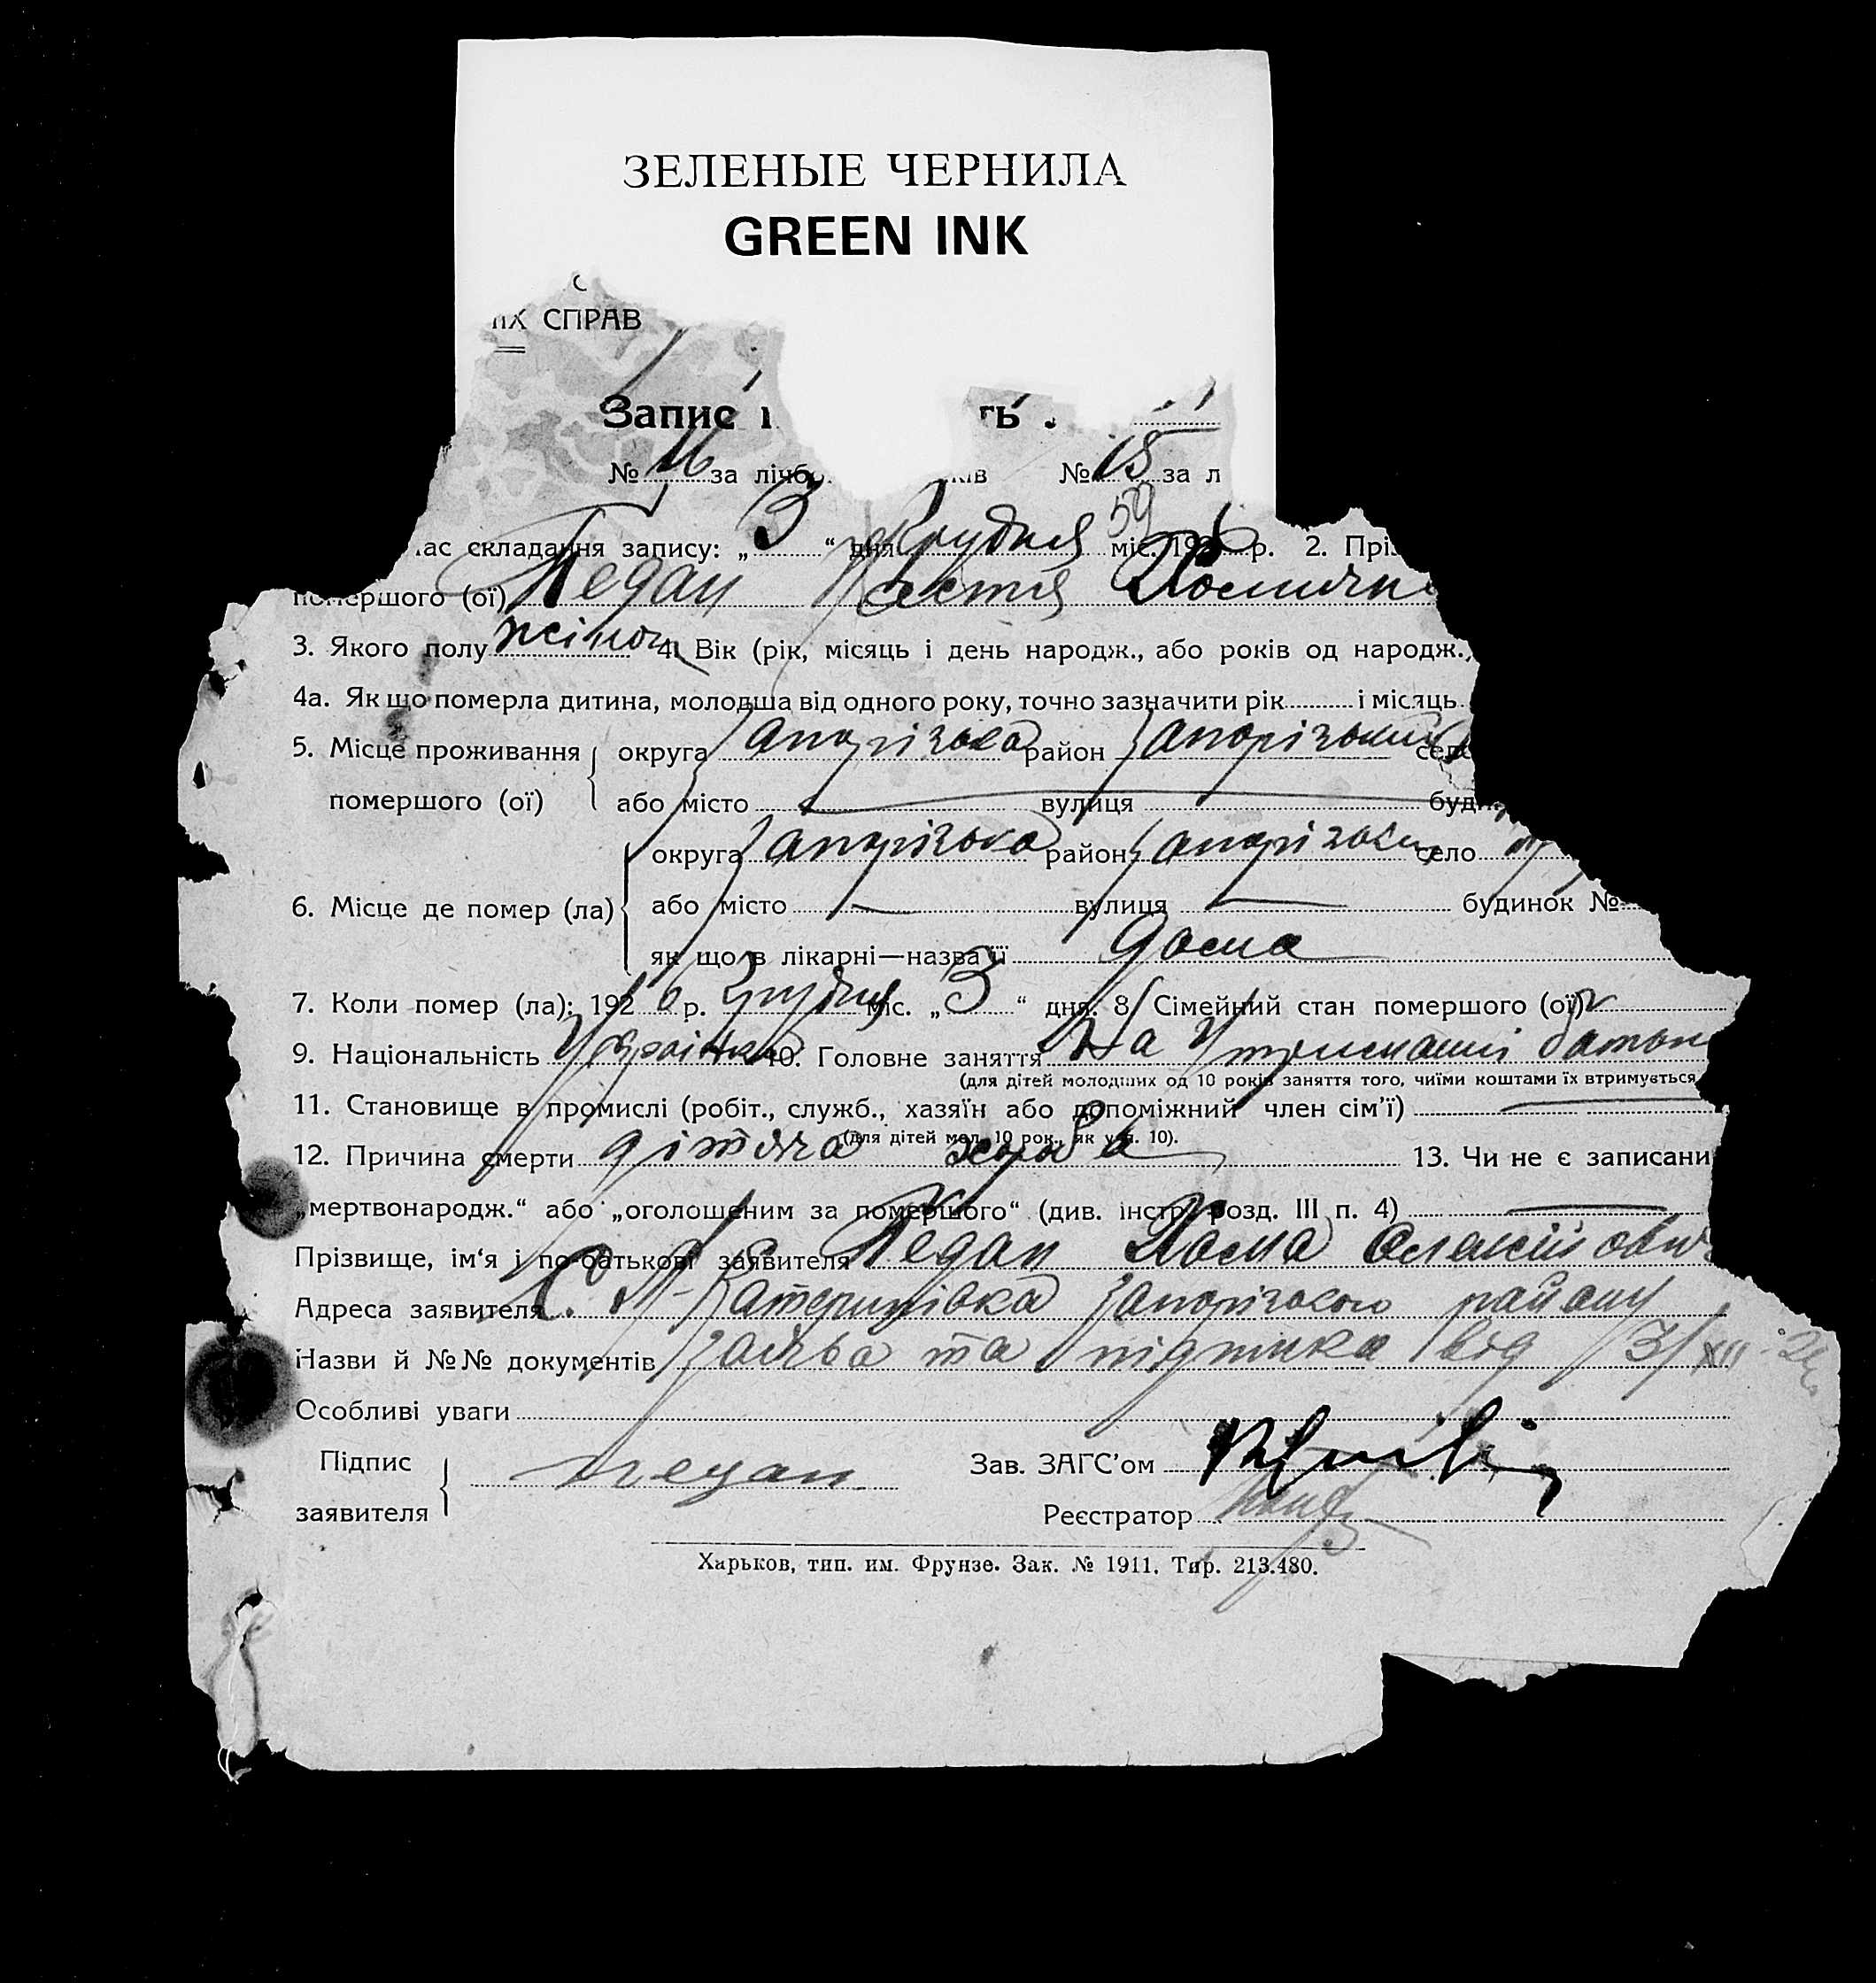 ЗЕЛЕНЫЕ ЧЕРНИЛА
GREEN INK
ИХ СПРАВ
Запис
№ 16 за лічб № 15 за л
час складання запису: „ 3 “ дня Грудня 59 міс. 1926 р. 2. Пріз
помершого (ої) Педан Настя Хомична
3. Якого полу жіноч 4. Вік (рік, місяць і день народж., або років од народж.,
4а. Як що померла дитина, молодша від одного року, точно зазначити рік і місяць
5. Місце проживання округа Запорізька район Запорізький село
помершого (ої) або місто — вулиця буди
округа Запорізька район Запорізький село
6. Місце де помер (ла) або місто — вулиця — будинок №
як що в лікарні—назва її дома
7. Коли помер (ла): 1926 р. Грудня міс. „ 3 “ дня. 8. Сімейний стан помершого (ої)
9. Національність Українка 10. Головне заняття На утриманні батьк
(для дітей молодших од 10 років заняття того, чиїми коштами їх втримується
11. Становище в промислі (робіт., служб., хазяїн або допоміжний член сім’ї) —
(для дітей мол. 10 рок., як у п. 10).
12. Причина смерти дітяча хороба 13. Чи не є записани
„мертвонародж.“ або „оголошеним за помершого“ (див. інстр. розд. III п. 4) —
Прізвище, ім‘я і по-батькові заявителя Педан Хома Олексійович
Адреса заявителя С. М-Катеринівка Запорізького району
Назви й №№ документів Заява та підписка від 3/XII-26
Особливі уваги
Підпис Педан Зав. ЗАГС’ом
заявителя Реєстратор
Харьков, тип. им. Фрунзе. Зак. № 1911. Тир. 213.480.